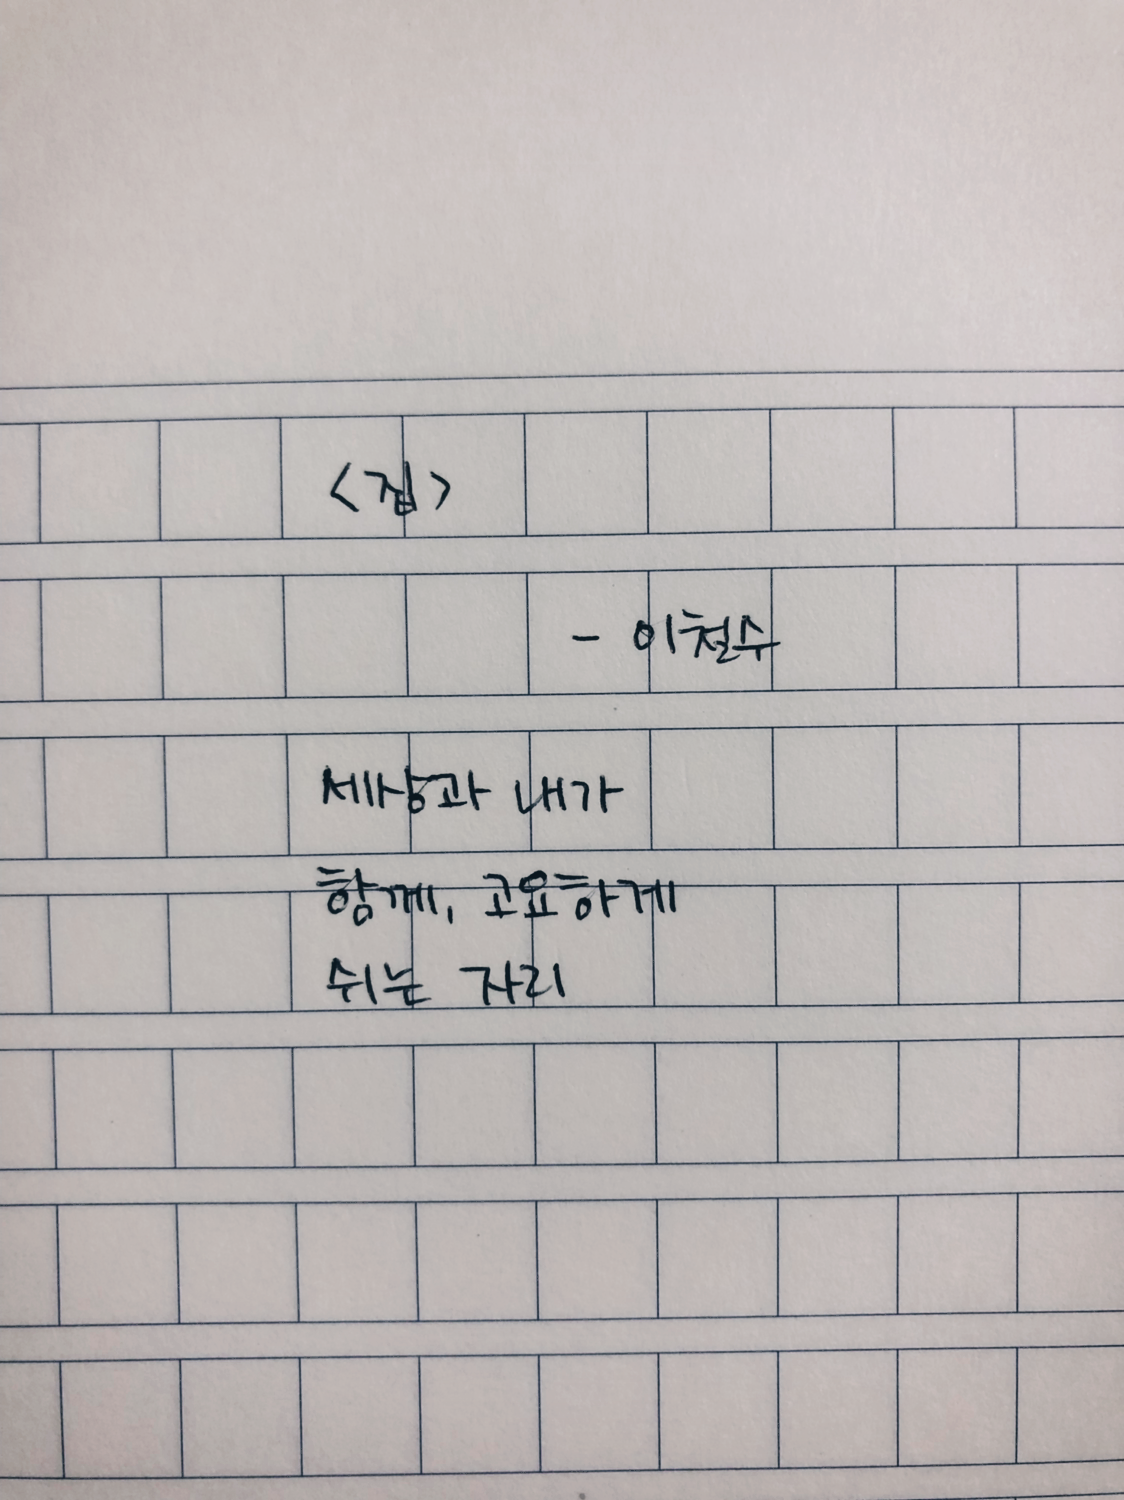 <집>
- 이철수
세상과 내가
함께, 고요하게
쉬는 자리